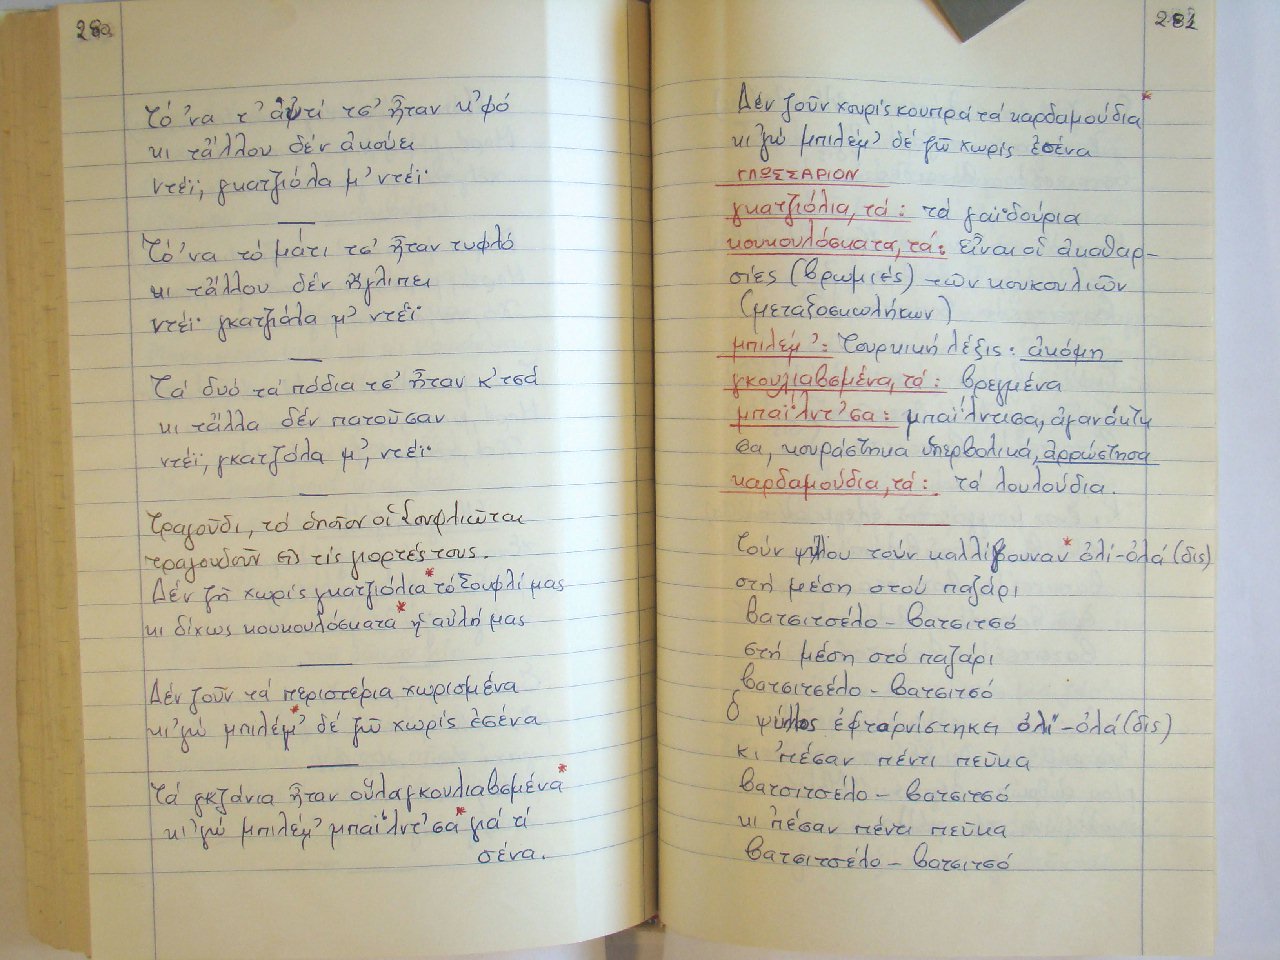 280
Τό 'να τ' ἀφτί τσ' ἦταν κ'φό
κι τἄλλου δέν ἀκούει
ντέϊ, γκατζιόλα μ' ντέϊ·
Τό 'να τό μάτι τσ' ἦταν τυφλό
κι τἄλλου δέν γλιπει
ντέϊ· γκατζιόλα μ' ντέϊ·
Τά δυό τά πόδια τσ' ἦταν κ'τσά
κι τἄλλα δέν πατοῦσαν
ντέϊ, γκατζόλα μ', ντέϊ·
Τραγοῦδι, τό ὁποῖον οἱ Σουφλιῶται
τραγουδοῦν εἰς τίς γιορτές τους.
Δέν ζῆ χωρίς γκατζιόλια* τό Σουφλί μας
κι δίχως κουκουλόσκατα* ἡ αὐλή μας
Δέν ζοῦν τά περιστέρια χωρισμένα
κι 'γώ μπιλέμ'* δέ ζῶ χωρίς ἐσένα
Τά γκζάνια ἦταν οὕλα γκουλιαβσμένα*
κι 'γώ μπιλέμ' μπαΐλντ'σα* γιά τί
σένα.
281
Δέν ζοῦν χουρίς κουπρά τά καρδαμούδια*
κι 'γώ μπιλέμ' δέ ζῶ χωρίς ἐσένα
ΓΛΩΣΣΑΡΙΟΝ
γκατζιόλια, τά: τά γαϊδούρια
κουκουλόσκατα, τά: εἶναι οἱ ἀκαθαρ-
σίες (βρωμιές) τῶν κουκουλιῶν
(μεταξοσκωλήκων)
μπιλέμ': Τουρκική λέξις· ἀκόμη
γκουλιαβσμένα, τά: βρεγμένα
μπαΐλντ'σα: μπαΐλντισα, ἀγανάκτη
σα, κουράστηκα ὑπερβολικά, ἀρρώστησα
καρδαμούδια, τά: τά λουλούδια.
Τούν ψύλου τούν καλλίβουναν* ὀλί-ὀλά (δις)
στή μέση στού παζάρι
βατσιτσέλο - βατσιτσό
στή μέση στό παζάρι
βατσιτσέλο - βατσιτσό
Ὁ ψύλλος ἐφταρνίστηκει ὀλί-ὀλά (δις)
κι 'πέσαν πέντι πεῦκα
βατσιτσέλο - βατσιτσό
κι 'πέσαν πέντι πεῦκα
βατσιτσέλο - βατσιτσό